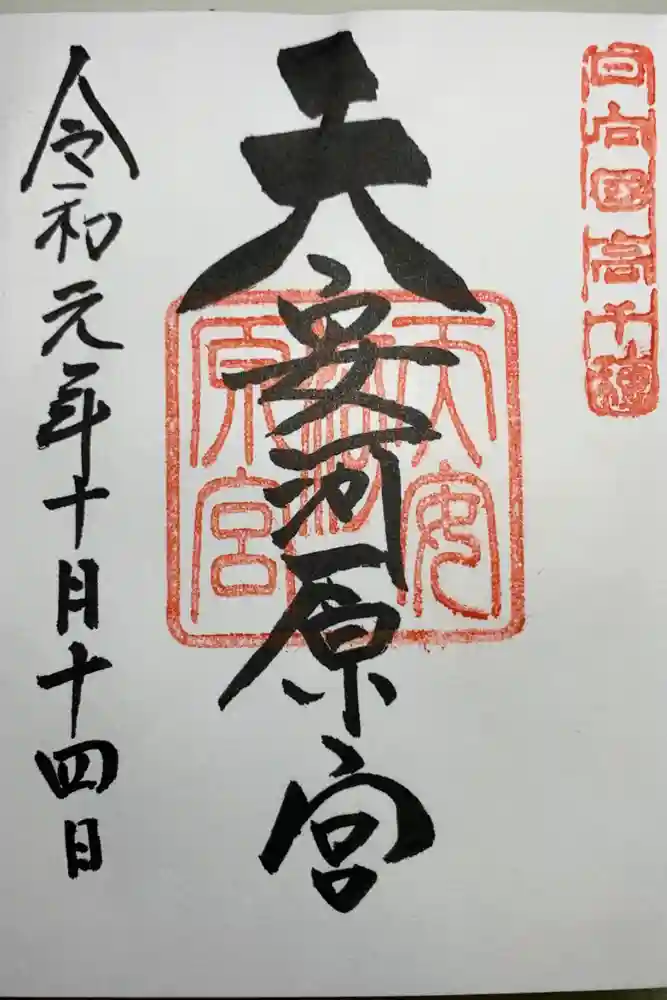 日向国高千穂
天安河原宮
天安河原宮
令和元年十月十四日